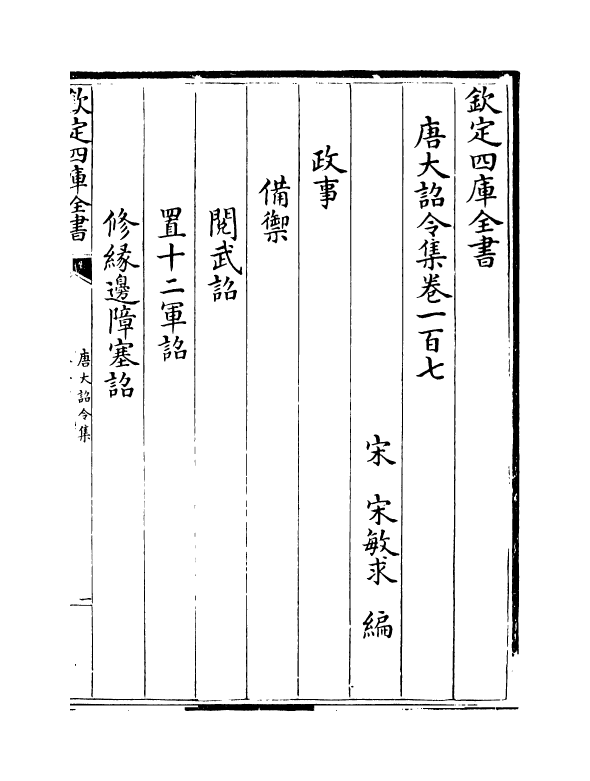 欽定四庫全書
唐大詔令集卷一百七
宋　宋敏求　編
政事
備禦
閱武詔
置十二軍詔
修緣邊障塞詔
欽定四庫全書
唐大詔令集
一